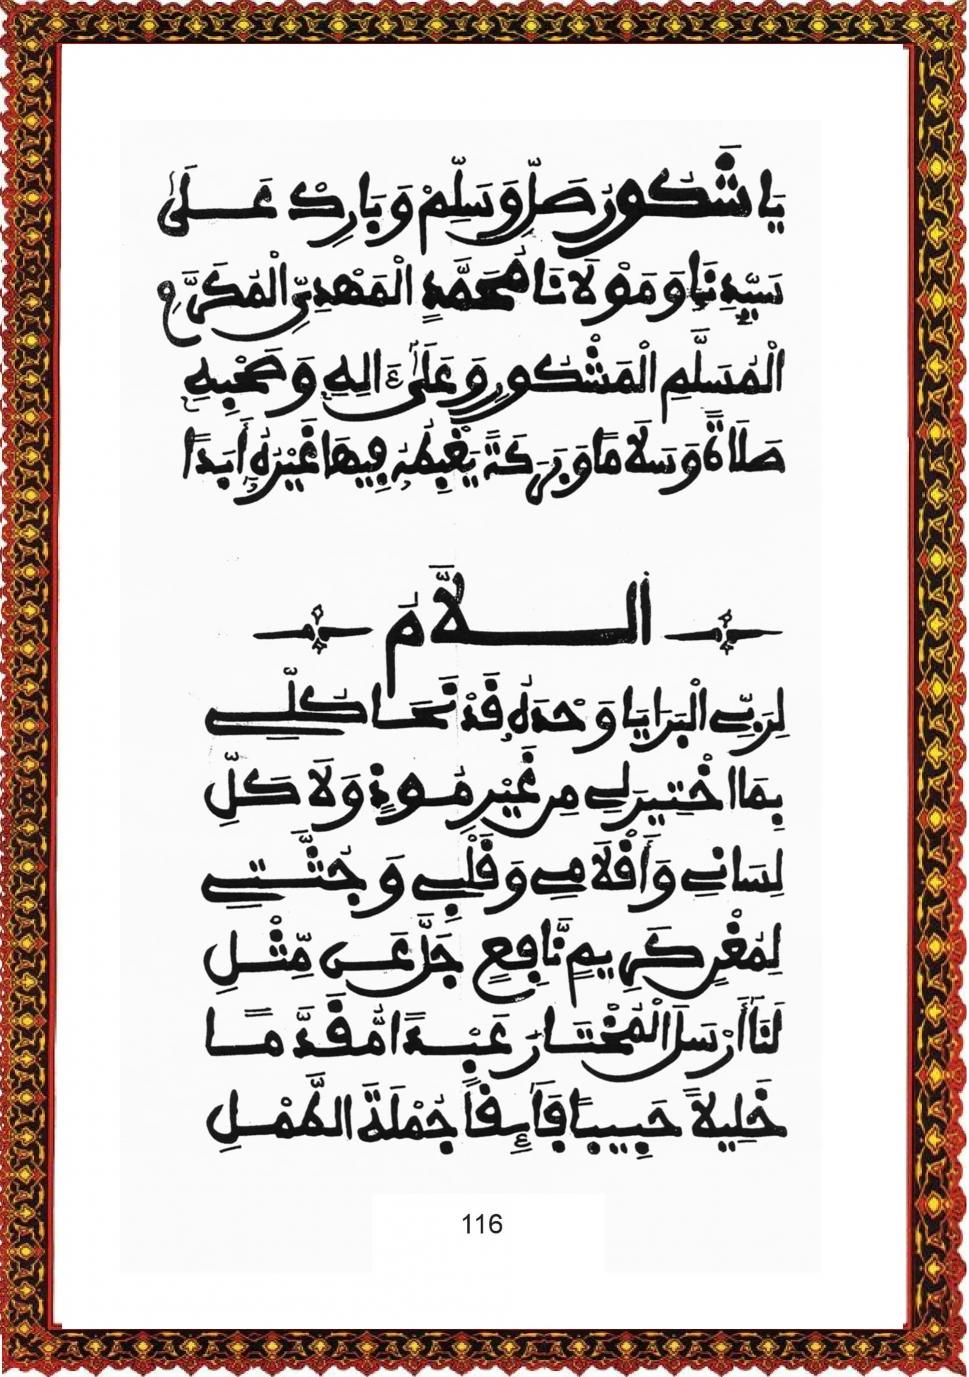 يَا شَكُورُ صَلِّ وَسَلِّمْ وَبَارِكْ عَلَىٰ
سَيِّدِنَا وَمَوْلَانَا مُحَمَّدٍ الْمَهْدِيِّ الْمُكَرَّمِ
الْمُسَلَّمِ الْمَشْكُورِ وَعَلَىٰ ءَالِهِ وَصَحْبِهِ
صَلَاةً وَسَلَامًا وَبَرَكَةً يَغْبِطُهُ فِيهَا غَيْرُهُ أَبَدًا
اللَّامُ
لِرَبِّ الْبَرَايَا وَحْدَهُ قَدْ نَحَا كُلِّي
بِمَا اخْتِيرَ لِي مِن غَيْرِ مُوذٍ وَلَا كَلِّ
لِسَانِي وَأَقْلَامِي وَقَلْبِي وَجُثَّتِي
لِمُغْرِكَرِيمٍ نَّافِعٍ جَلَّ عَن مِّثْلِ
لَنَا أَرْسَلَ الْمُخْتَارَ عَبْدًا مُّقَدَّمًا
خَلِيلًا حَبِيبًا فَائِقًا جُمْلَةَ الْهُمْلِ
116